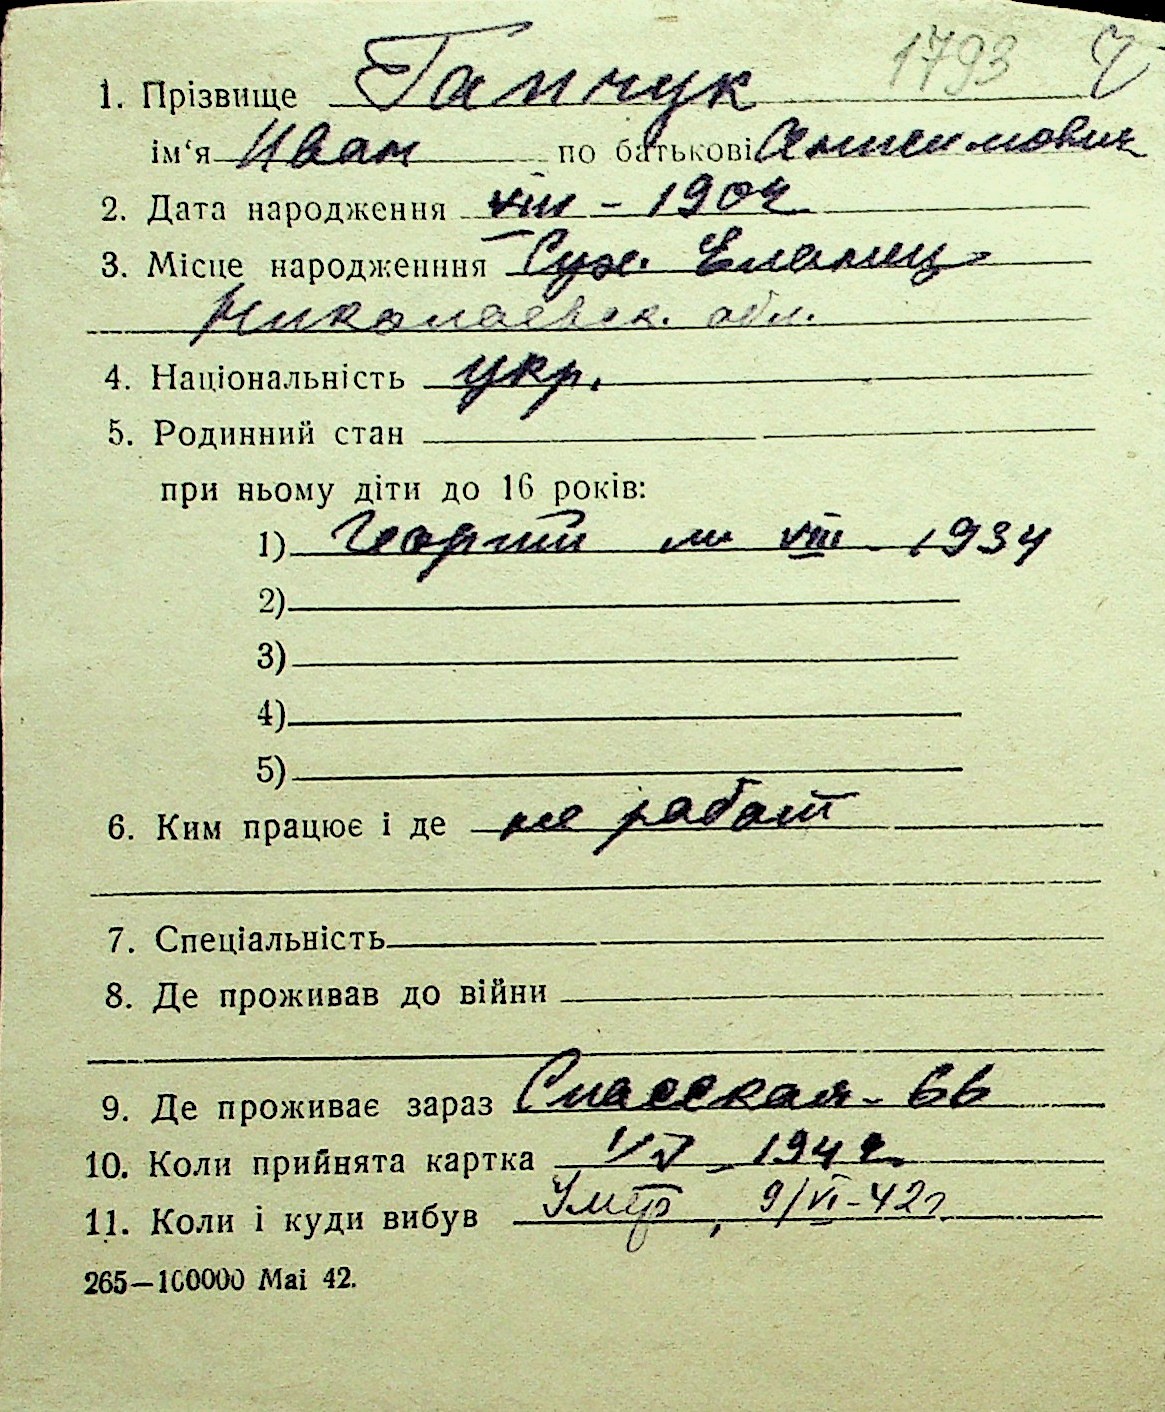 1793 У
1. Прізвище Гапчук
ім‘я Иван по батькові Анисимович
2. Дата народження VIII - 1904
3. Місце народженння Сух. Еланец
Николаевск. обл.
4. Національність укр.
5. Родинний стан
при ньому діти до 16 років:
1) Георгий VIII 1934
2)
3)
4)
5)
6. Ким працює і де не работ
7. Спеціальність
8. Де проживав до війни
9. Де проживає зараз Спасская - 66
10. Коли прийнята картка 1/V - 1942.
11. Коли і куди вибув Умер, 9/VI-42г
265—100000 Mai 42.